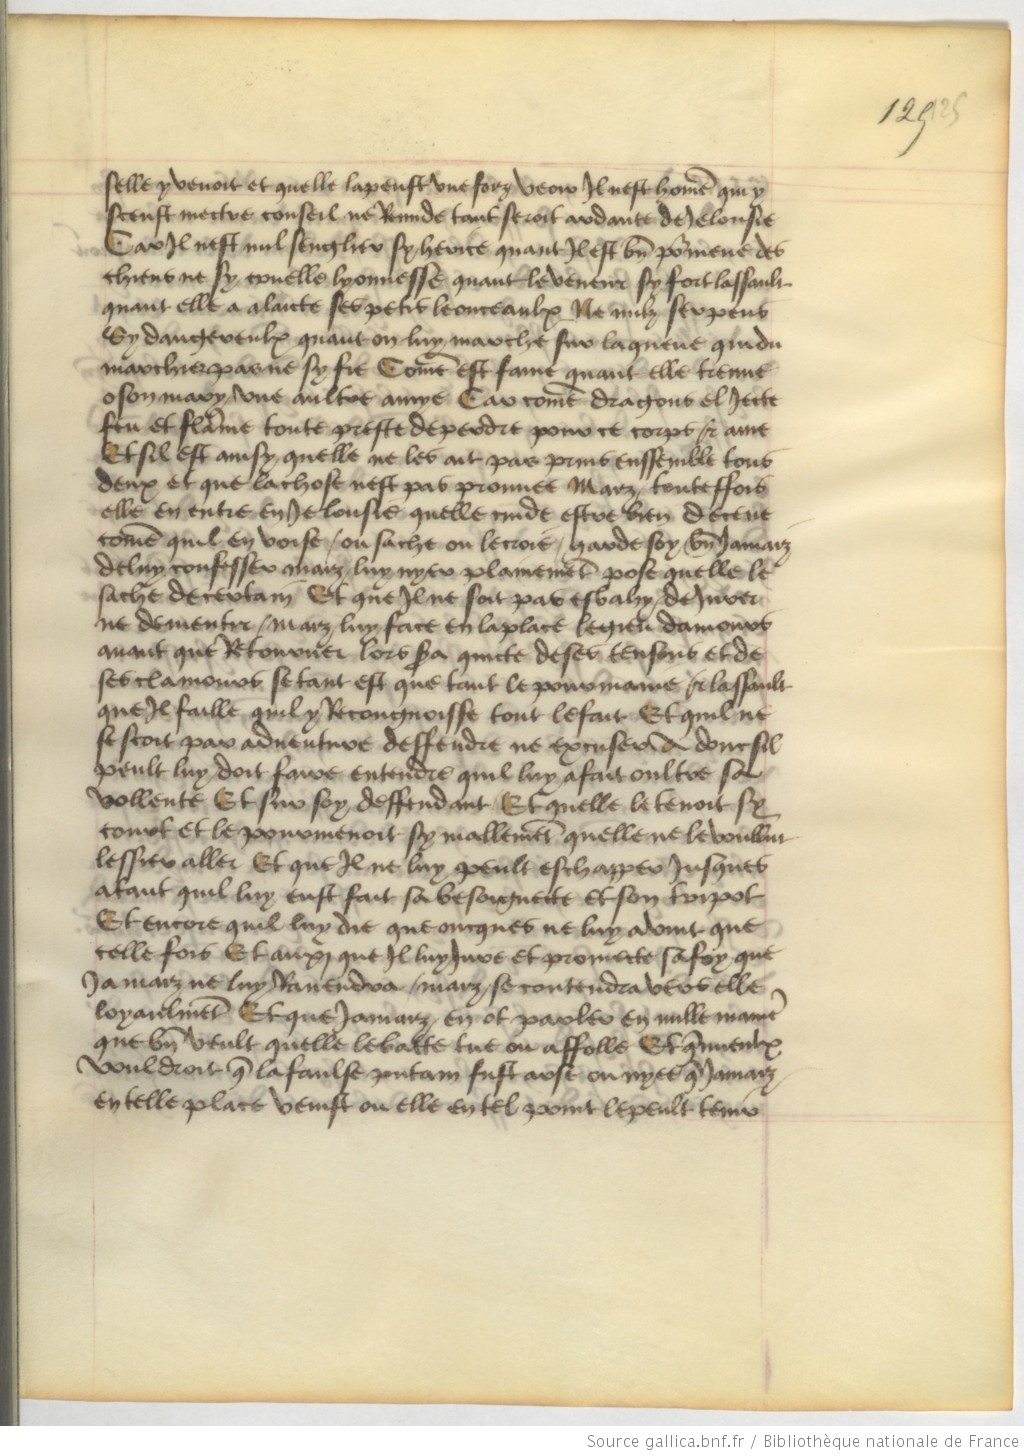 129 125
selle y venoit et quelle lapeust une forz veoir Il nest home qui y
sceust mectre conseil ne Remede tant seroit ardante de Jelousie
Car Il nest nul senglier sy herice quant Il est bn pormene des
chiens ne sy cruelle lyonnesse quant le veneur sy fort lassault
quant elle a alaicte ses petis leonceaulx Ne nulz serpens
Sy dangereulx quant on luy marche sur la queue qui du
marchier pas ne sy fie Come est fame quant elle treuue
o son mary une aultre amye Car come dragons el Jecte
feu et flame toute preste de perdre pour ce corps & ame
Et sil est ainsy quelle ne les ait pas prins enssemble tous
deux et que la chose nest pas prouuee Marz touteffois
elle en entre en Jelousie quelle cuide estre bien deceue
come quil en voise / ou sache ou le croie / garde soy bn Jamarz
de luy confesser marz luy nyer plainemet pose quelle le
sache de certain Et que Il ne soit pas esbahy de Jurer
ne de mentir / marz luy face en la place le gieu damours
auant que Retourner lors sera quicte de ses tensons et de
ses clamours se tant est que tant le pourmaine & lassault
que Il faille quil y Recongnoisse tout le fait Et quil ne
se scoit par aduenture deffendre ne excuser A donc sil
peult luy doit faire entendre quil luy a fait oultre sa
vollente Et sur soy deffendant Et quelle le tenoit sy
court et le pourmenoit sy mallemet quelle ne le voullut
lessier aller Et que Il ne luy peult eschapper Jusques
atant quil luy eust fait sa besoignecte et son tripot
Et encore quil luy die que oncques ne luy avint que
celle fois Et auxi que Il luy Jure et promecte sa foy que
Ja marz ne luy Rauendra / marz se contendra vers elle
loyaulmet Et que Jamarz en ot parler en nulle manie
que bn veult quelle le batte tue ou affolle Et q mieulx
vouldroit q la faulse putain fust arse ou nyee q Jamarz
en telle place venist ou elle en tel point le peult tenir
Source gallica.bnf.fr / Bibliothèque nationale de France